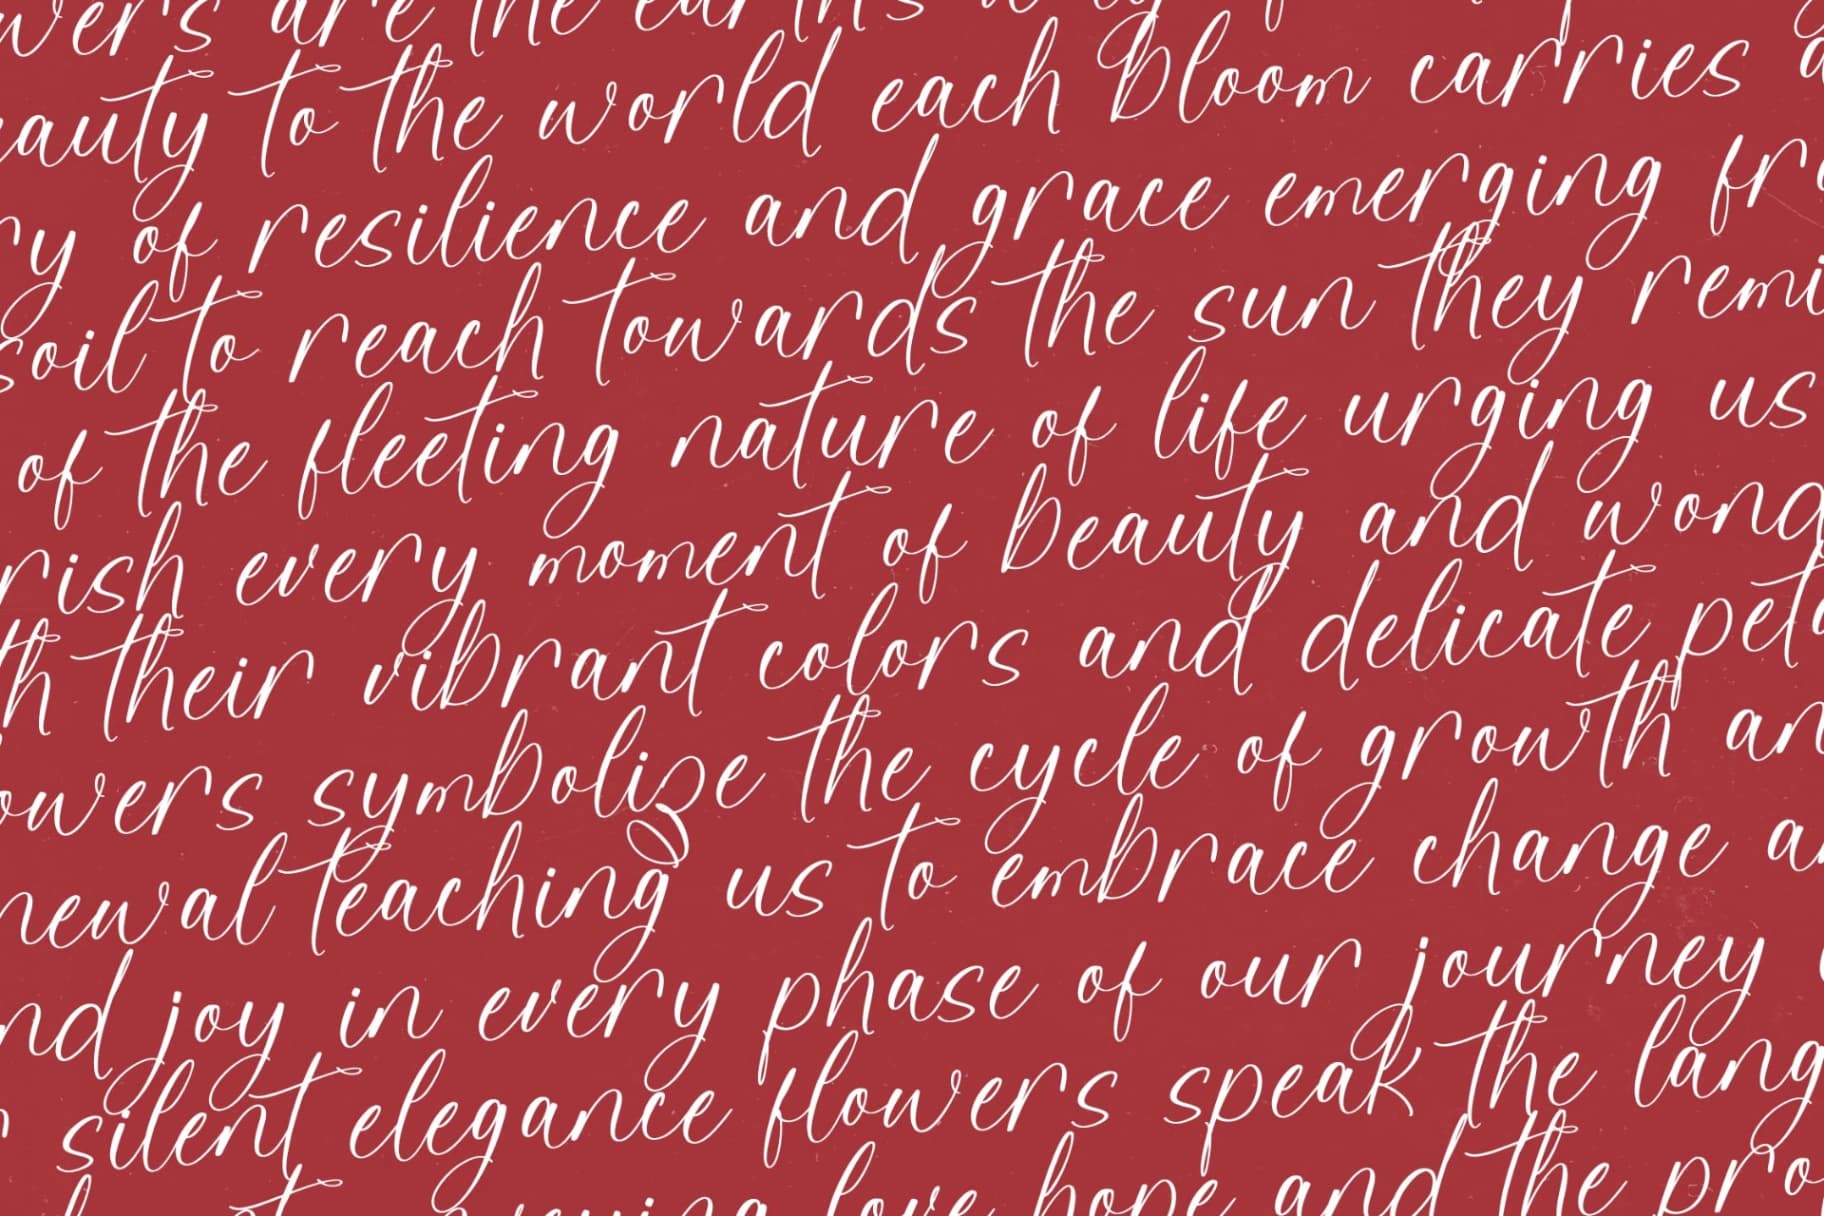 wers are the earth's
eauty to the world each bloom carries a
ry of resilience and grace emerging fr
soil to reach towards the sun they remi
of the fleeting nature of life urging us
rish every moment of beauty and wond
th their vibrant colors and delicate peta
owers symbolize the cycle of growth an
newal teaching us to embrace change a
nd joy in every phase of our journey
silent elegance flowers speak the lang
love hope and the pro